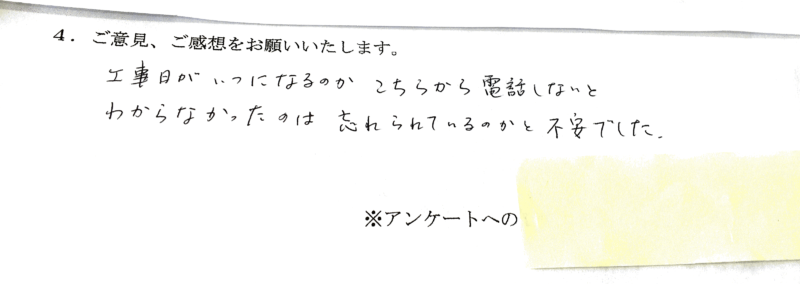 ４．ご意見、ご感想をお願いいたします。
工事日がいつになるのか こちらから電話しないと
わからなかったのは 忘れられているのかと不安でした.
※アンケートへの